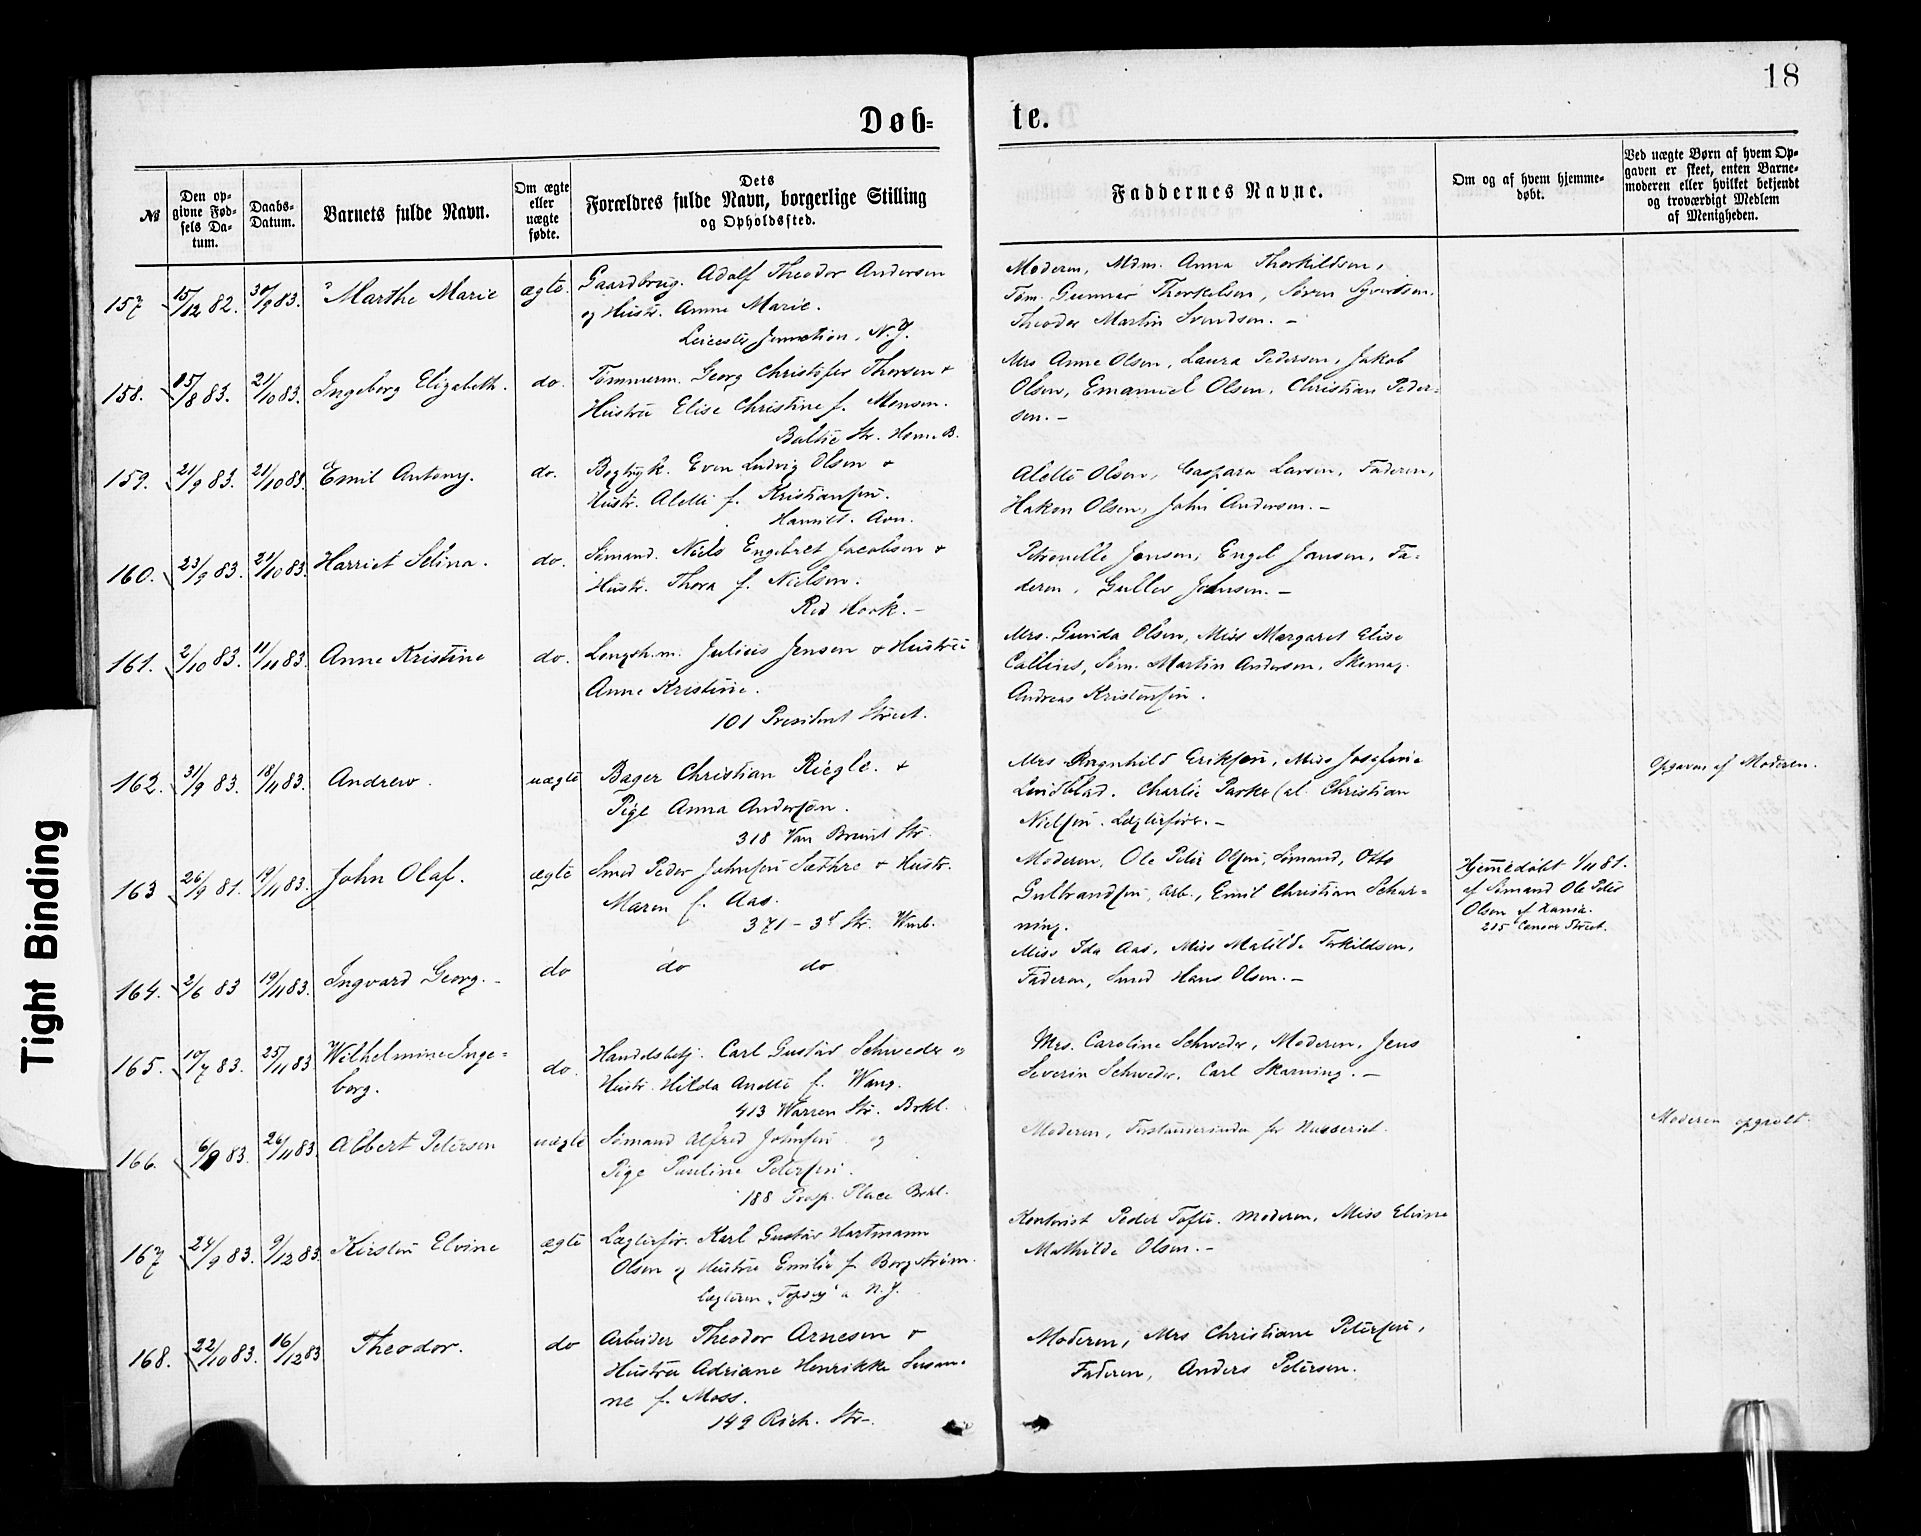 18
Døb=
te.
№
Den op-
givne Fød-
sels Da-
tum.
Daabs-
Datum.
Barnets fulde Navn.
Om ægte
eller
uægte
fødte.
Dets
Forældres fulde Navn, borgerlige Stilling
og Opholdssted.
Faddernes Navne.
Om og af hvem hjemme-
døbt.
Ved uægte Børn af hvem Op-
gaven er skeet, enten Barne-
moderen eller hvilket bekjendt
og troværdigt Medlem
af Menigheden.
157
15/12 82.
30/9 83.
Marthe Marie
ægte.
Gaardbrug. Adolf Theodor Andersen
og Hustr. Anne Marie.
Leicester Junction, N.J.
Moderen, Mdm. Anna Thorkildsen,
Tøm. Gunnar Thorkelsen, Søren Syvertsen.
Theodor Martin Svendsen. –
158.
15/8 83.
21/10 83.
Ingeborg Elizabeth.
do.
Tømmerm. Georg Christofer Thorsen +
Hustru Elise Christine f. Monsen.
Baltic Str. Hom. B.
Mrs Anne Olsen, Laura Pedersen, Jakob
Olsen, Emanuel Olsen, Christian Peder-
sen. –
159.
21/9 83.
21/10 83.
Emil Antony.
do.
Bogtryk. Even Ludvig Olsen +
Hustr. Alette f. Kristiansen.
Hamilt. Avn.
Alette Olsen, Caspara Larsen, Faderen,
Hakon Olsen, John Andersen. –
160.
23/9 83.
21/10 83.
Harriet Selina.
do.
Sømand. Niels Engebret Jacobsen +
Hustr. Thora f. Nielsen.
Red Hook. –
Petronelle Jensen, Engel Jansen, Fa-
deren, Gullov Johnsen. –
161.
2/10 83.
11/11 83.
Anne Kristine
do.
Longsh.m. Julius Jensen + Hustru
Anne Kristine.
101 President Street.
Mrs. Gunda Olsen, Miss Margaret Elise
Collins, Søm. Martin Andersen, Skomag.
Andreas Kristensen.
162.
31/9 83.
18/11 83.
Andrew.
uægte
Bager Christian Riegle. +
Pige Anna Anderson.
318 Van Brunt Str.
Mrs Ragnhild Eriksen, Miss Josefine
Lindblad. Charlie Parker (al. Christian
Nielsen. Lægterfør. –
Opgaven af Moderen.
163
26/9 81.
19/11 83.
John Olaf.
ægte
Smed Peder Johnsen Sæthre + Hustr.
Maren f. Aas.
371 – 3d Str.
Moderen, Ole Peter Olsen, Sømand, Otto
Gulbrandsen, Arb., Emil Christian Schar-
ning.
Hjemmedøbt 1/11 81.
af Sømand Ole Peter
Olsen af Xania.
215 Conover Street.
164.
2/6 83
19/11 83.
Ingvard Georg. –
do
do do
Miss Ida Aas, Miss Matilde Torkildsen,
Faderen, Smed Hans Olsen. –
165.
10/7 83.
25/11 83.
Wilhelmine Inge=
borg.
do.
Handelsbetj. Carl Gustav Schweder og
Hustr. Hilda Anette f. Wang.
413 Warren Str. Bokl.
Mrs. Caroline Schweder, Moderen, Jens
Severin Schweder, Carl Skarning. –
166.
6/9 83.
26/11 83.
Albert Petersen
uægte
Sømand Alfred Johnsen og
Pige Pauline Petersen.
188 Prosp. Place Bokl.
Moderen,
Moderen opgivet.
167
24/9 83.
9/12 83
Kirstin Elvine
ægte
Lægterfør. Karl Gustav Hartmann
Olsen og Hustru Emilie f. Borgstrøm.
Lægteren „Topsy“ N.J.
Kontorist Peder Tofte. Moderen, Miss Elvine
Mathilde Olsen. –
168.
22/10 83.
16/12 83
Theodor.
do
Arbeider Theodor Arnesen +
Hustru Adriane Henrikke Susan-
ne f. Moss.
149 Rich. Str.
Moderen, Mrs Christiane Petersen,
Faderen, Anders Petersen.
Tight Binding